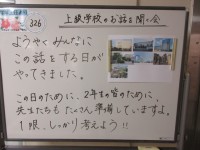 326
上級学校のお話を聞く会
ようやくみんなに
この話をする日が
やってきました。
この日のために、2年生の皆のために、
先生たちもたくさん準備していますよ。
1限、しっかり考えよう!!